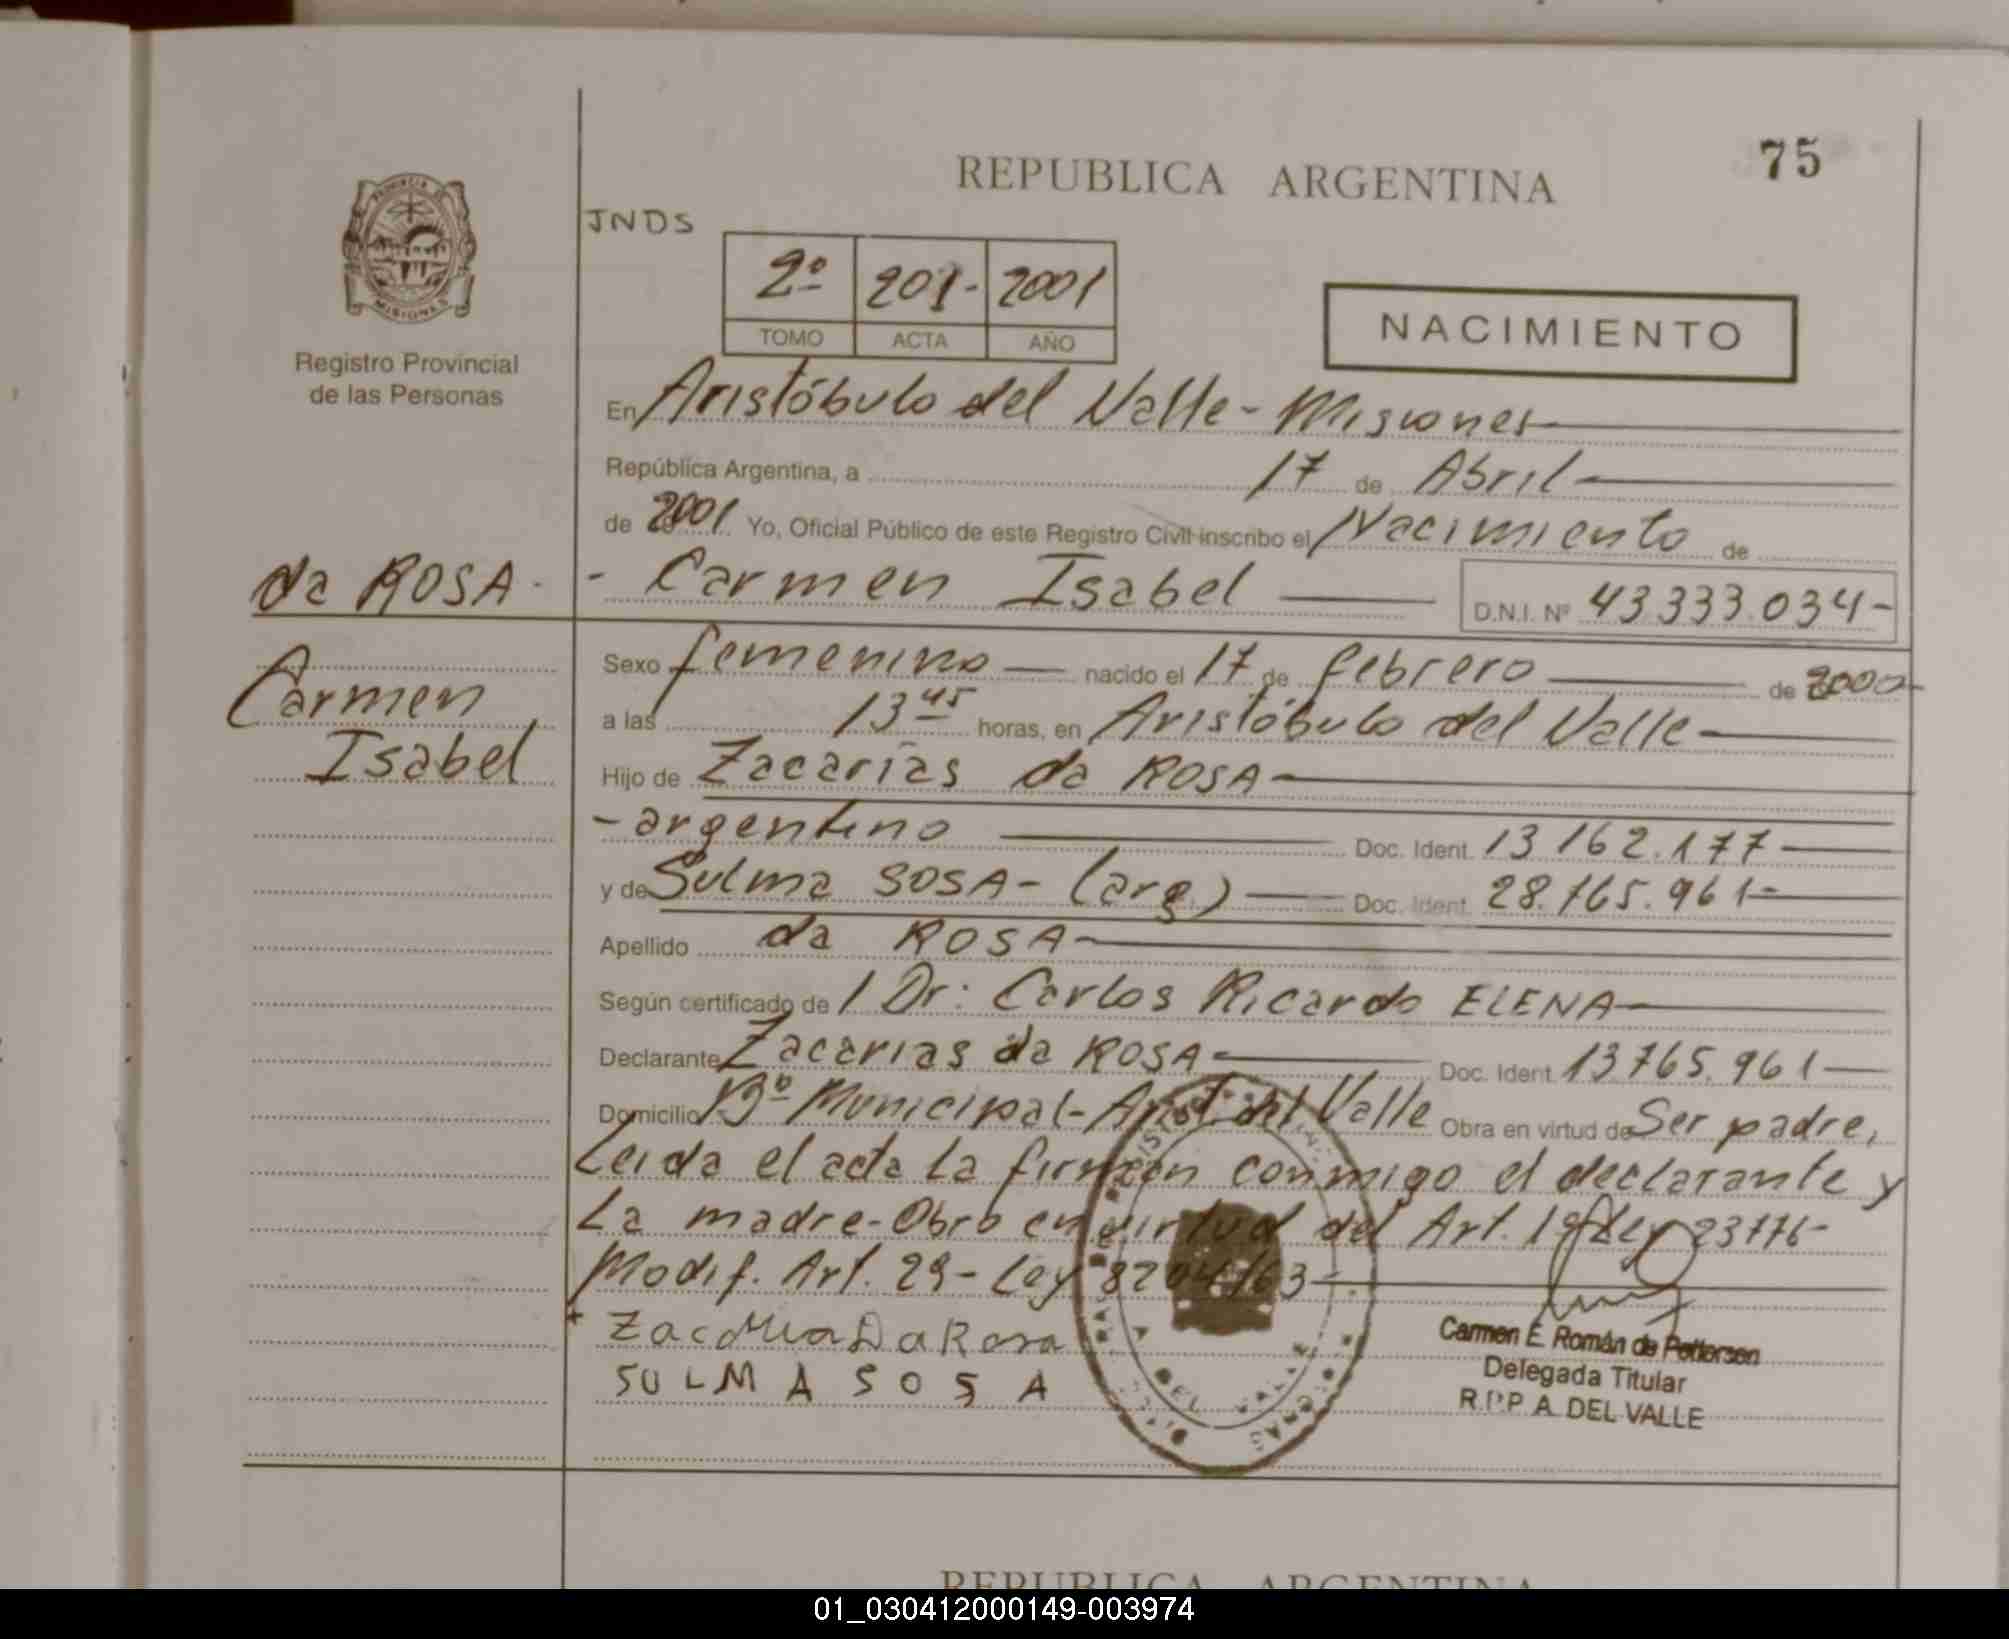 75
REPUBLICA ARGENTINA
JNDS
2º 201- 2001
TOMO ACTA AÑO
NACIMIENTO
PROVINCIA DE
MISIONES
Registro Provincial
de las Personas
En Aristóbulo del Valle - Misiones
República Argentina, a 17 de Abril
de 2001 Yo, Oficial Público de este Registro Civil inscribo el Nacimiento de
da ROSA - - Carmen Isabel D.N.I. Nº 43.333.034-
Carmen
Isabel
Sexo femenino nacido el 17 de febrero de 2000
a las 13 45 horas, en Aristóbulo del Valle
Hijo de Zacarías da ROSA
- argentino Doc. Ident. 13.162.177
y de Sulma SOSA - (arg.) Doc. Ident. 28.765.961-
Apellido da ROSA
Según certificado de / Dr: Carlos Ricardo ELENA
Declarante Zacarias da ROSA Doc. Ident. 13.765.961
Domicilio Bº Municipal - Arist. del Valle Obra en virtud de Ser padre,
Leida el acta la firman conmigo el declarante y
La madre - Obro en virtud del Art. 1º Ley 23776-
Modif. Art. 29 - Ley 8204/63
Da Rosa
SULMA SOSA
Carmen E. Román de Pettersen
Delegada Titular
R.P.P A. DEL VALLE
REPUBLICA ARGENTINA
01_030412000149-003974